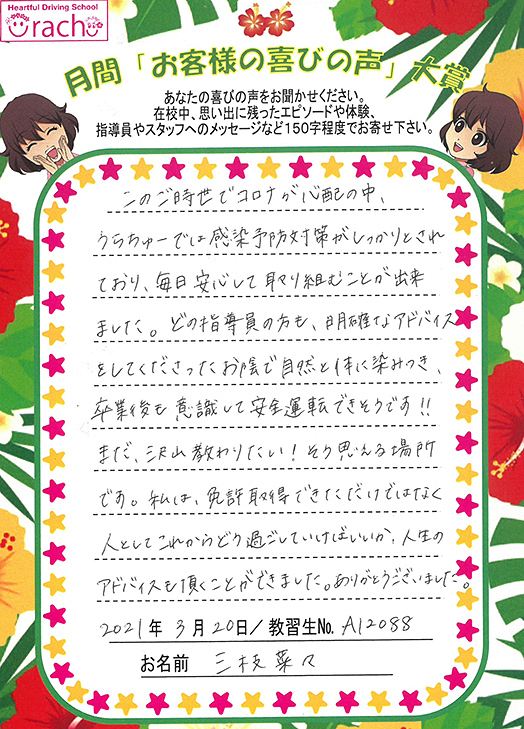 Heartful Driving School
Urachu
月間「お客様の喜びの声」大賞
あなたの喜びの声をお聞かせください。
在校中、思い出に残ったエピソードや体験、
指導員やスタッフへのメッセージなど150字程度でお寄せ下さい。
このご時世でコロナが心配の中、
うらちゅーでは感染予防対策がしっかりとされ
ており、毎日安心して取り組むことが出来
ました。どの指導員の方も、明確なアドバイス
をしてくださったお陰で自然と体に染みつき、
卒業後も意識して安全運転できそうです!!
まだ、沢山教わりたい!そう思える場所
です。私は、免許取得できただけではなく
人としてこれからどう過ごしていけばいいか、人生の
アドバイスも頂くことができました。ありがとうございました。
2021年 3月20日/教習生No. A12088
お名前 三枝菜々